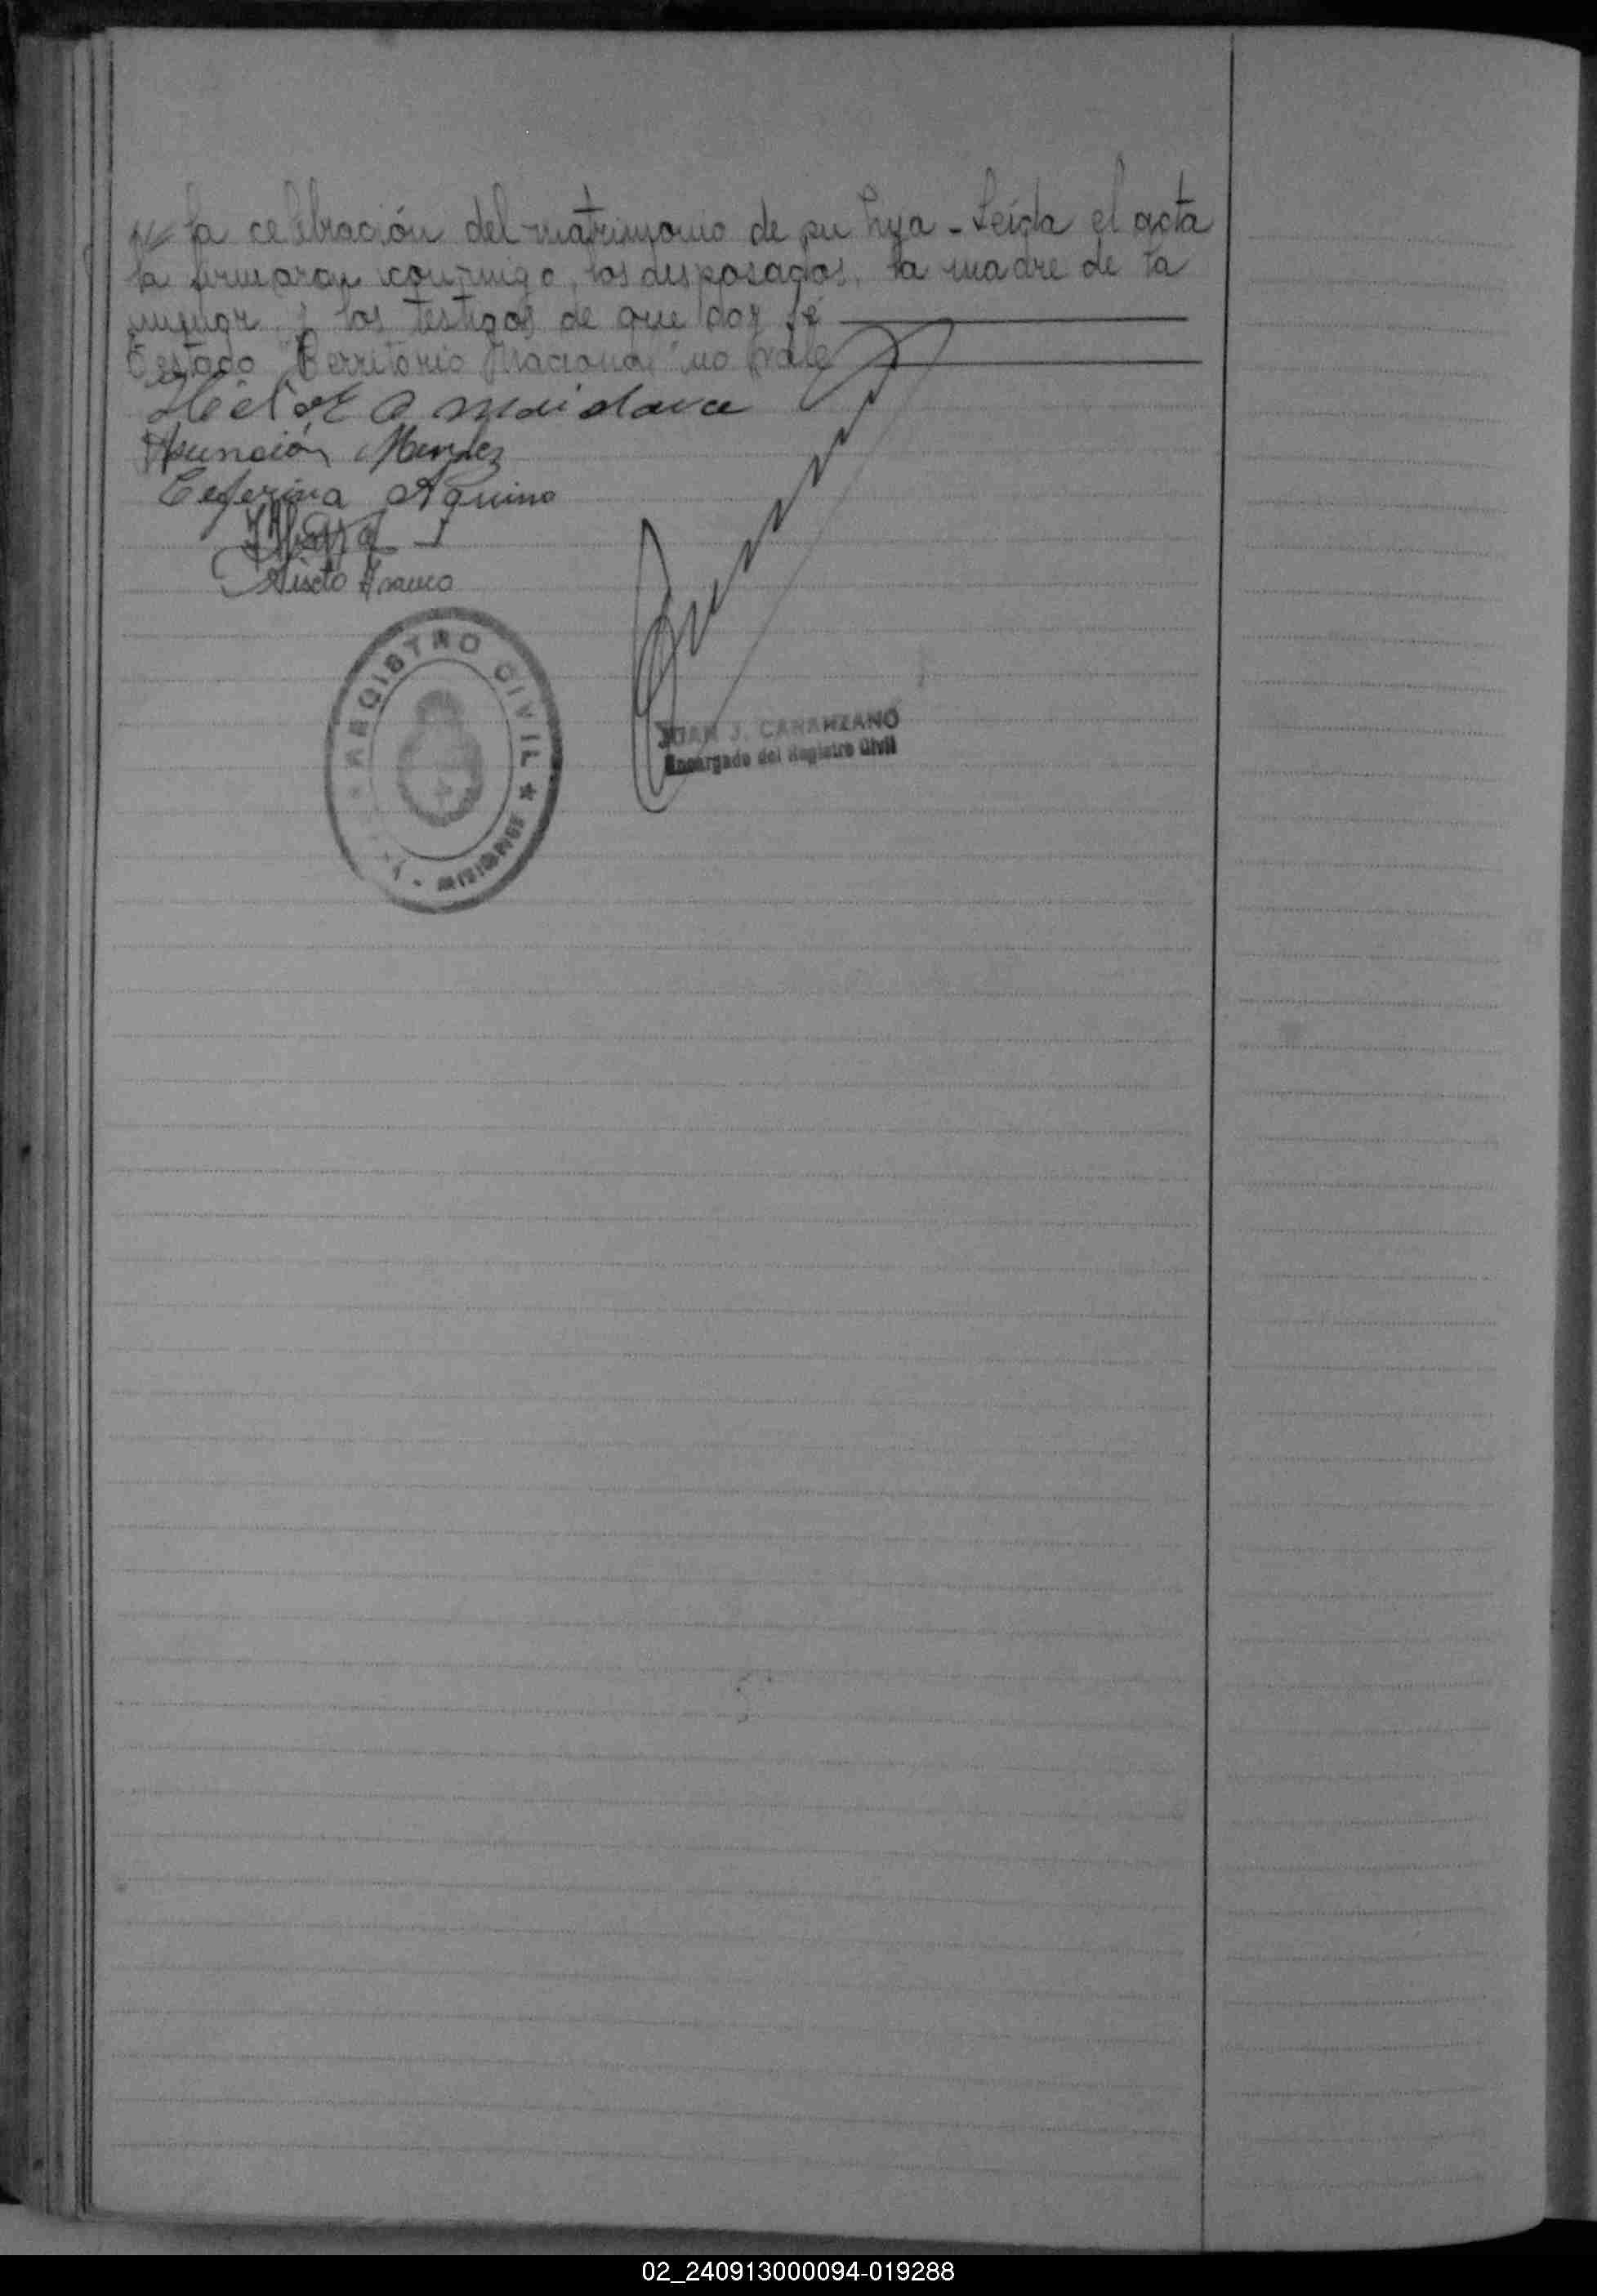 la celebración del matrimonio de su hija - Leída el acta
la firmaron conmigo, los desposados, la madre de la
menor y los testigos de que doy fé
Testado "Territorio Nacional" no vale
Asunción Mendez
Ceferina Aquino
Franco
REGISTRO CIVIL ★ MISIONES
JUAN J. CARANZANO
Encargado del Registro Civil
02_240913000094-019288